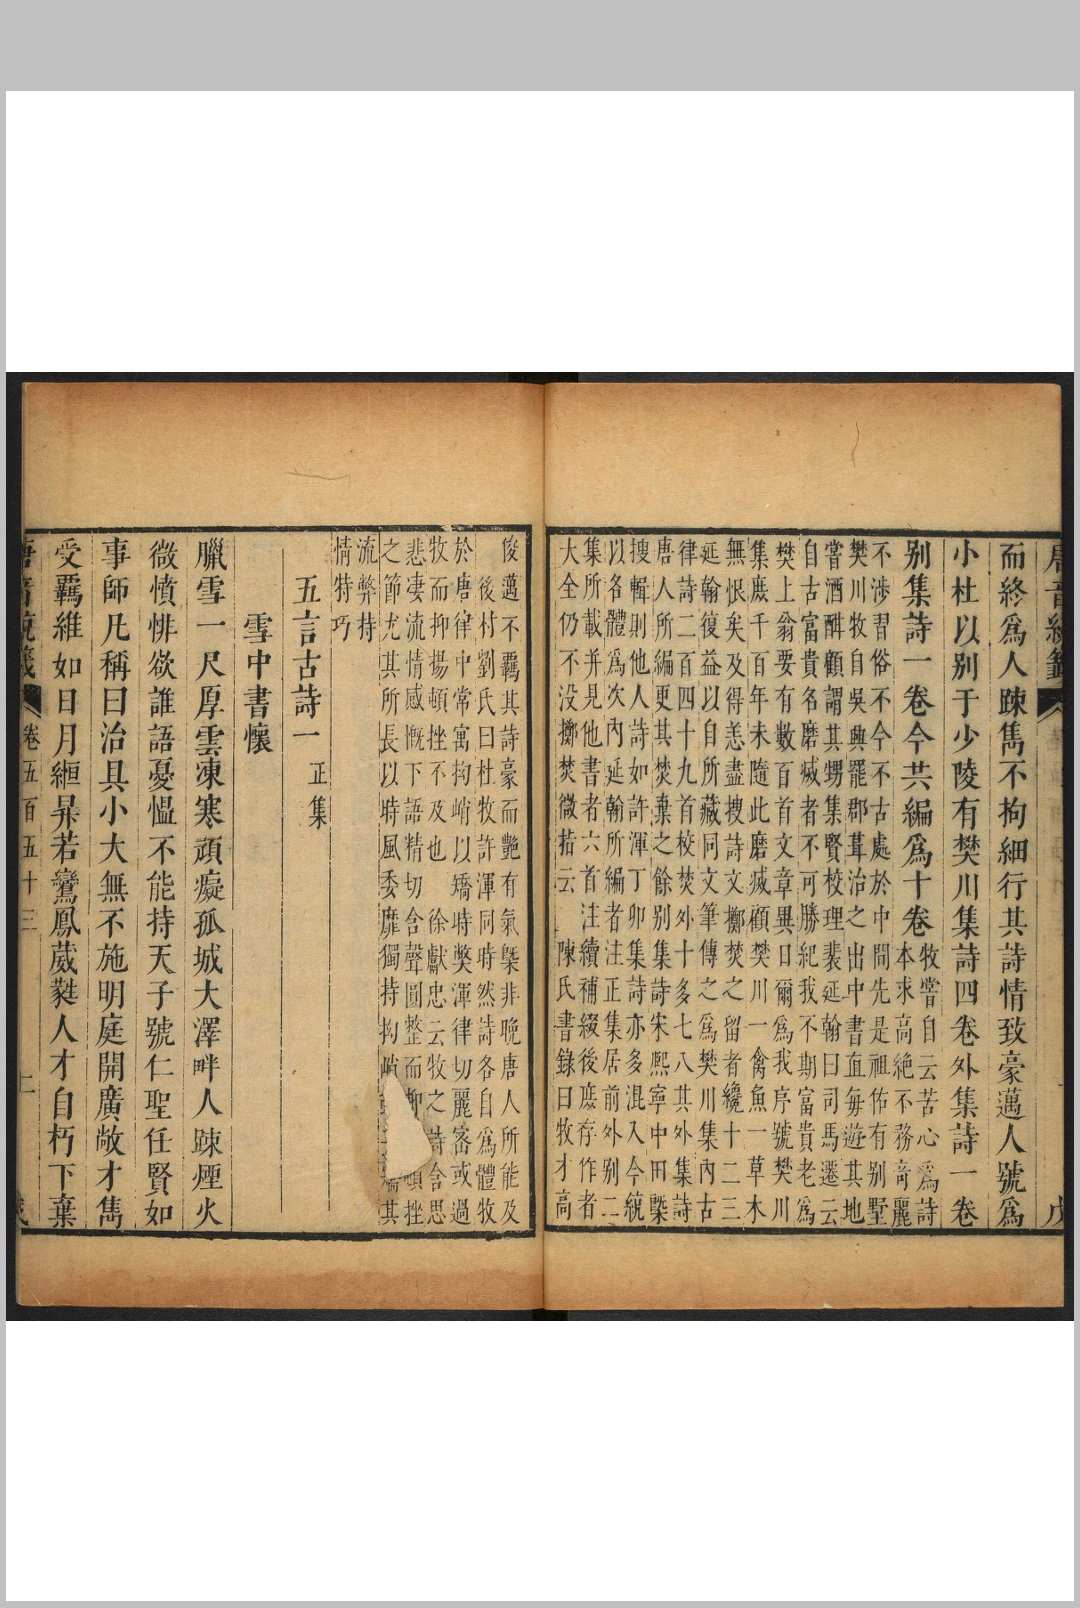 唐音統籤
戊
而終爲人踈雋不拘細行其詩情致豪邁人號爲
小杜以别于少陵有樊川集詩四卷外集詩一卷
别集詩一卷今共編爲十卷
牧嘗自云苦心爲詩
本求高絶不務奇麗
不涉習俗不今不古處於中間先是祖佑有别墅
樊川牧自吳興罷郡葺治之出中書直毎遊其地
嘗酒酣顧謂其甥集賢校理裴延翰曰司馬遷云
自古富貴名磨滅者不可勝紀我不期富貴老爲
樊上翁要有數百首文章異日爾爲我序號樊川
集庶千百年未隨此磨滅顧樊川一禽魚一草木
無恨矣及得恙盡搜詩文擲焚之留者纔十二三
延翰復益以自所藏同文筆傳之爲樊川集内古
律詩二百四十九首校焚外十多七八其外集詩
唐人所編更其焚棄之餘别集詩宋熙寧中田槩
搜輯則他人詩如許渾丁卯集詩亦多混入今統
以各體爲次内延翰所編者注正集居前外别二
集所載并見他書者六首注續補綴後庶存作者
大全仍不没擲焚微㫖云 陳氏書錄曰牧才高
俊邁不羈其詩豪而艶有氣槩非晚唐人所能及
後村劉氏曰杜牧許渾同時然詩各自爲體牧
於唐律中常寓拗峭以矯時獘渾律切麗密或過
牧而抑揚頓挫不及也 徐獻忠云牧之詩含思
悲凄流情感慨下語精切含聲圓整而抑頓挫
之節尤其所長以時風委靡獨持拗峭其
流弊持
情特巧
五言古詩一 正集
雪中書懷
臘雪一尺厚雲凍寒頑癡孤城大澤畔人踈煙火
微憤悱欲誰語憂愠不能持天子號仁聖任賢如
事師凡稱曰治具小大無不施明庭開廣敞才雋
受羈維如日月緪昇若鸞鳳葳蕤人才自朽下棄
唐音統籤 卷五百五十三 二 戊